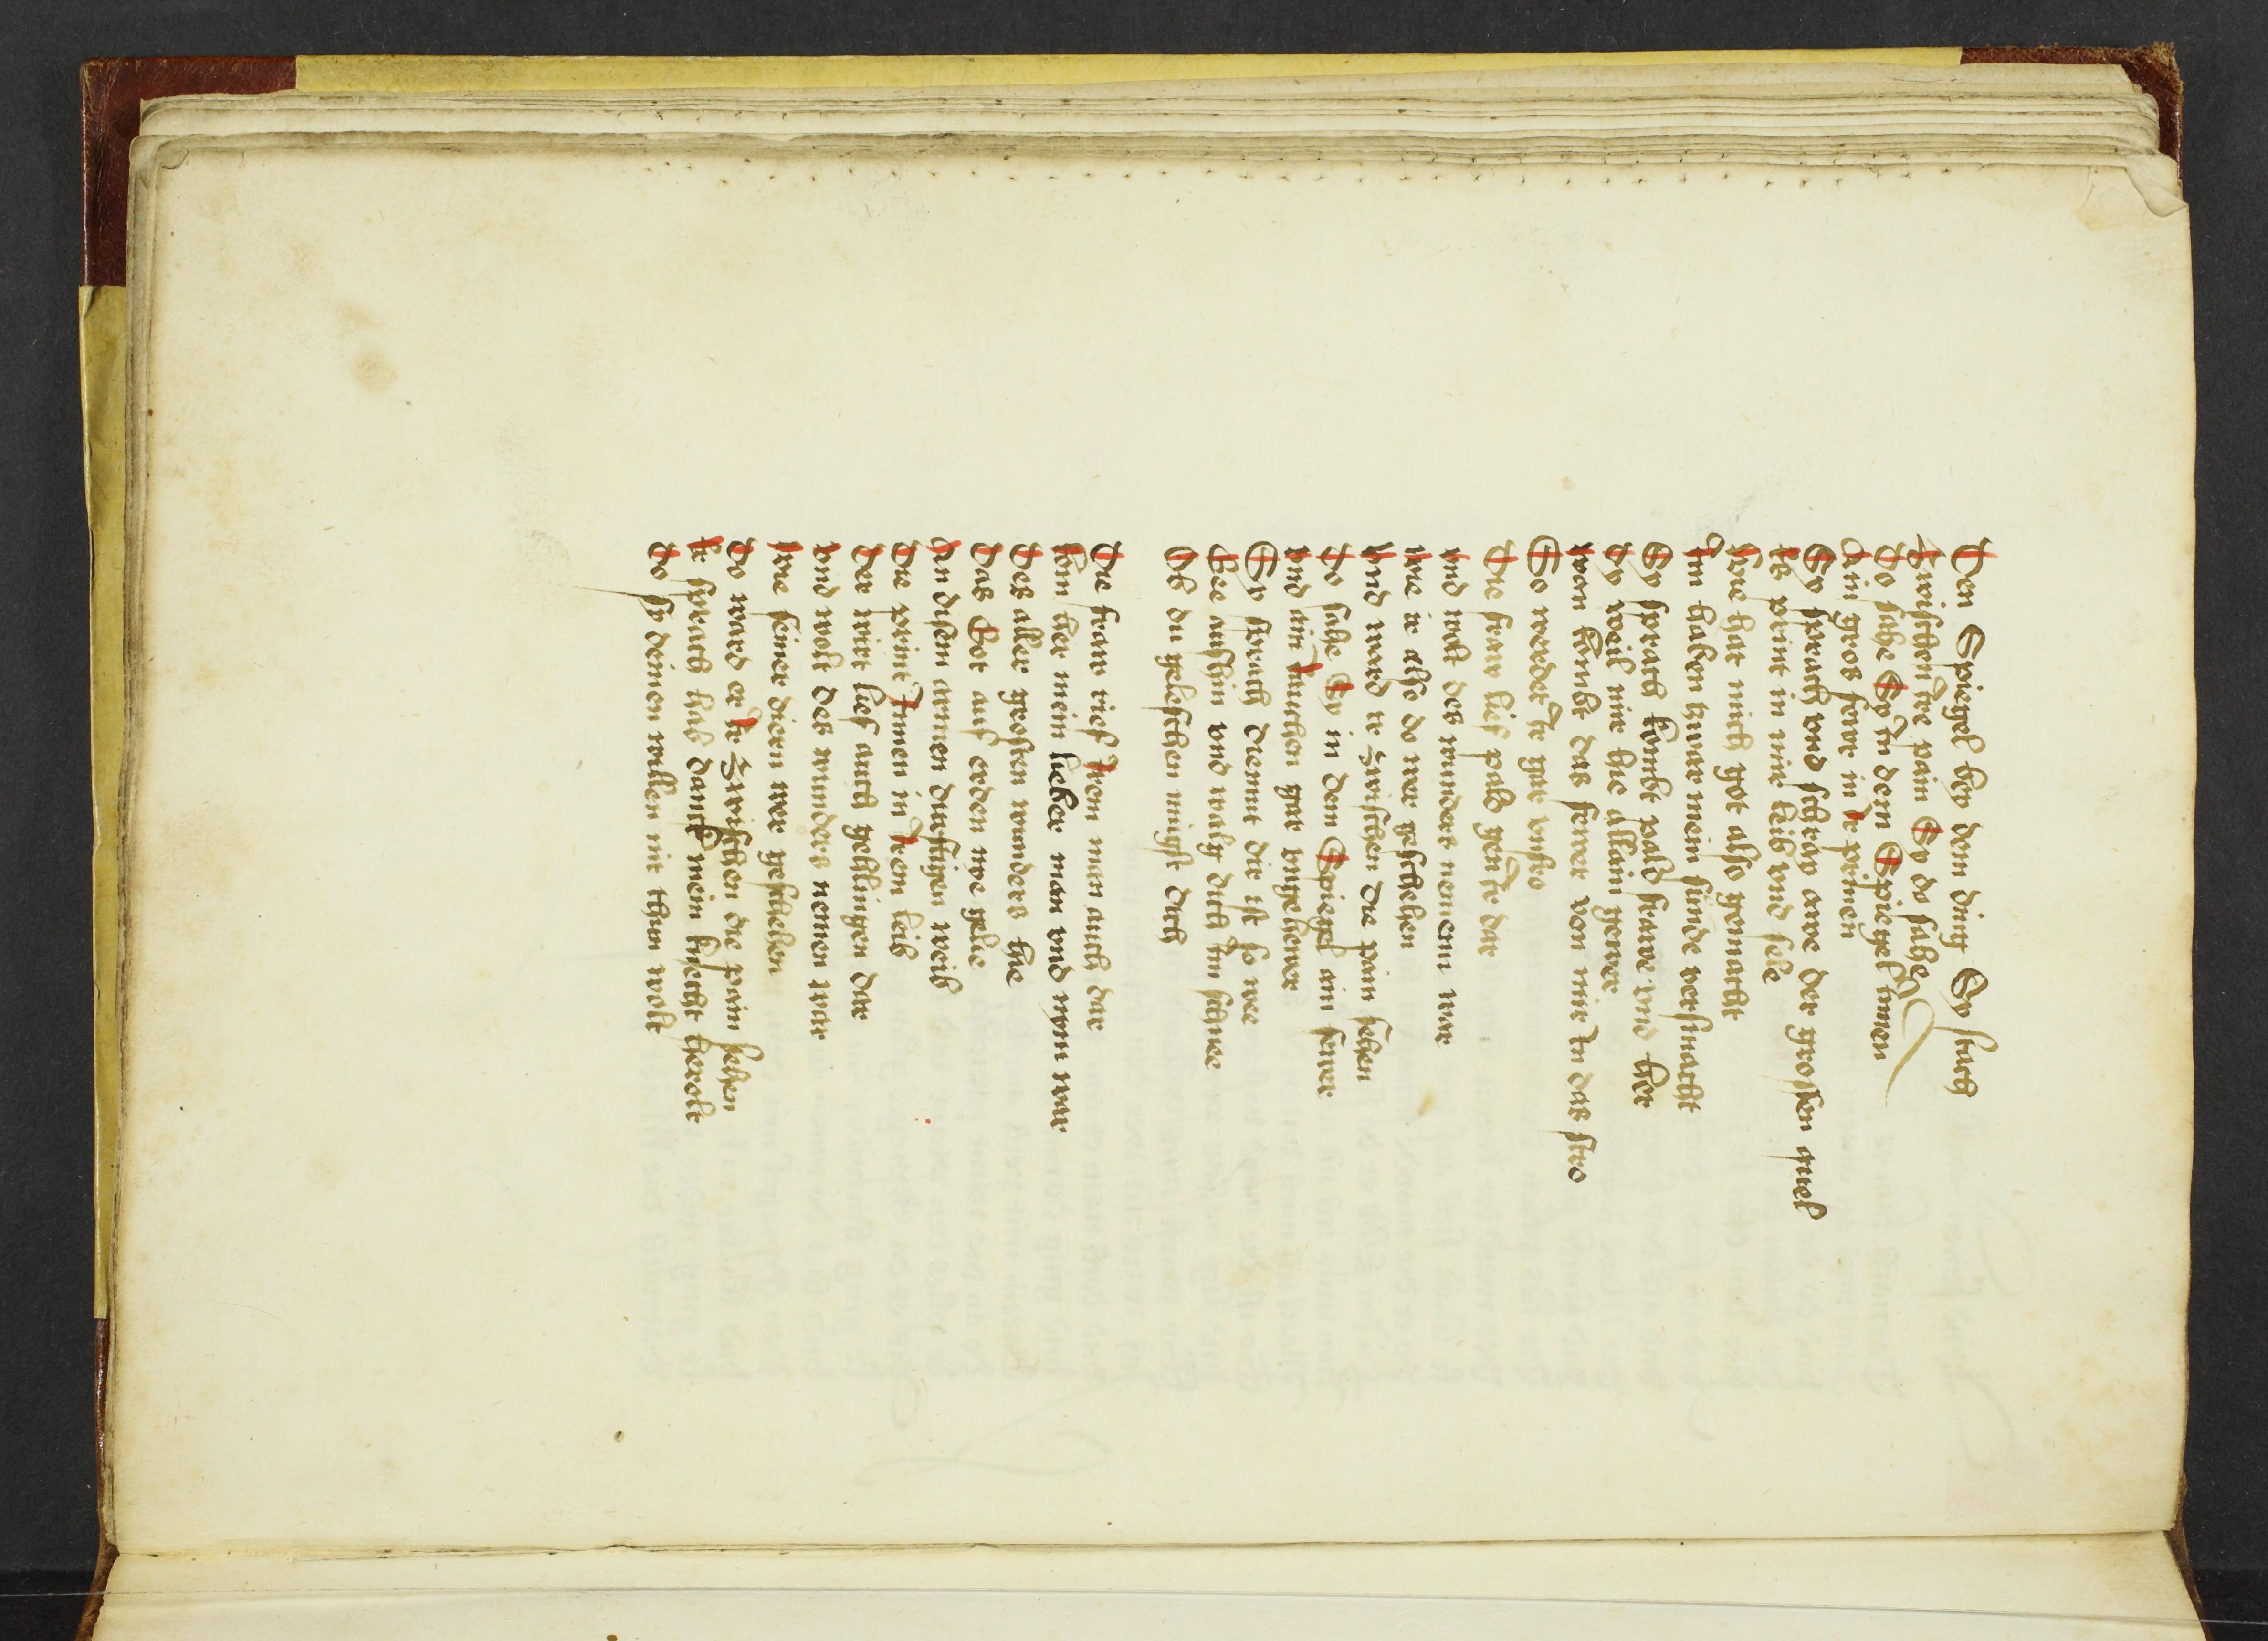 Den Spiegel bey dem ding Sy stach
Zwischen Ire pain Sy do sahe
Do sahe Sy In dem Spiegel Innen
Ain gros fewr in Ir prinen
Sy sprach vnd schray awe der grossen quel
Es print in mir leib vnd sele
Hie hat mich got also gemacht
Im haben zwar mein sünde versmacht
Sy sprach kombt pald frawe vnd her
Ey weil nir hie allain gewer
wan kombt das fewer von mir In das stro
So werdet Ir gar vnfro
Die fraw lief pald gen Ir dar
vnd wolt des wunders nemenn war
wie ir also do wer geschehen
vnd ward ir zwischen die pain sehen
Do sahe Sy in dem Spiegel ain fewer
vnd ain Rauchen gar vngehewer
Sy sprach diemut dir ist so wee
Gee aushin vnd walg dich Im schnee
Ob du geleschen mügst dich
Die fraw rief Irem man auch dar
kom her mein lieber man vnd nym war
Des aller grosten wunders hie
Das Got auf erden we gelie
An disem armen durftigen weib
Die print Innen in Irem leib
Der wirt lief auch gehlingen dar
vnd wolt des wunders nemen war
wie seiner diern wer geschehen
Do ward er Ir Zwischen die pain sehen
Er sprach hab danck mein knecht herolt
Do sy deinen willen nit thun wolt